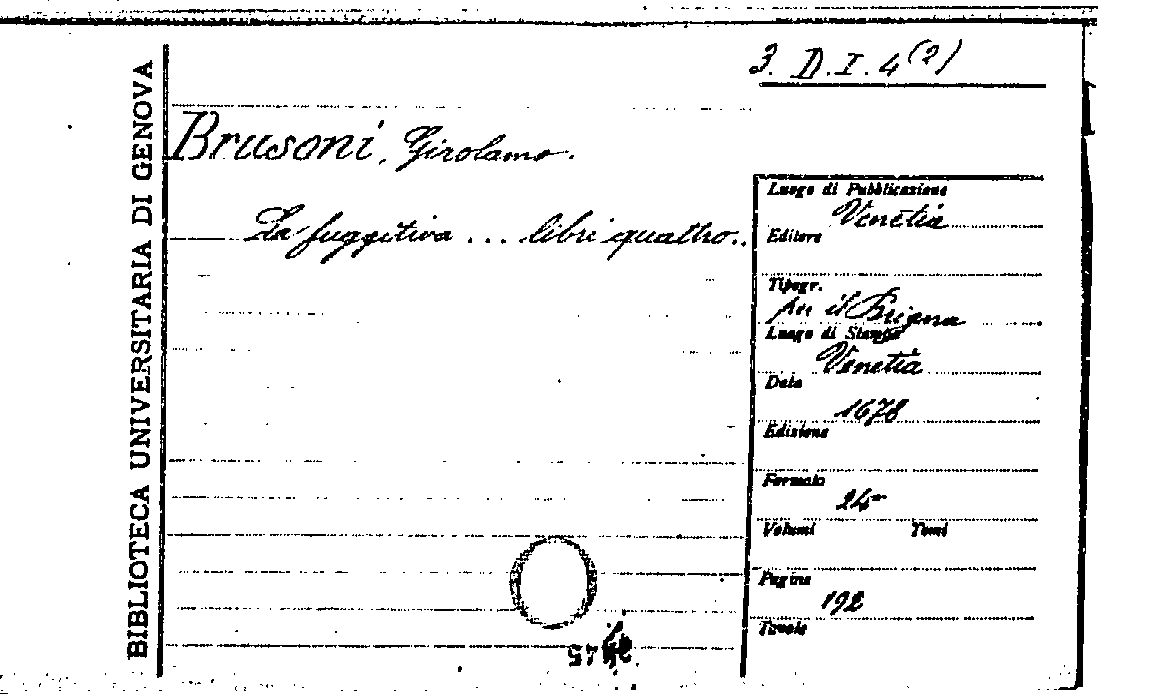 3. D.I.4(2)
BIBLIOTECA UNIVERSITARIA DI GENOVA
Brusoni, Girolamo.
La fuggitiva ... libri quattro..
Luogo di Pubblicazione
Venetia
Editore
Tipogr.
per il Brigna
Luogo di Stampa
Venetia
Data
1678
Edizione
Formato
24°
Volumi Tomi
Pagine
192
Tavole